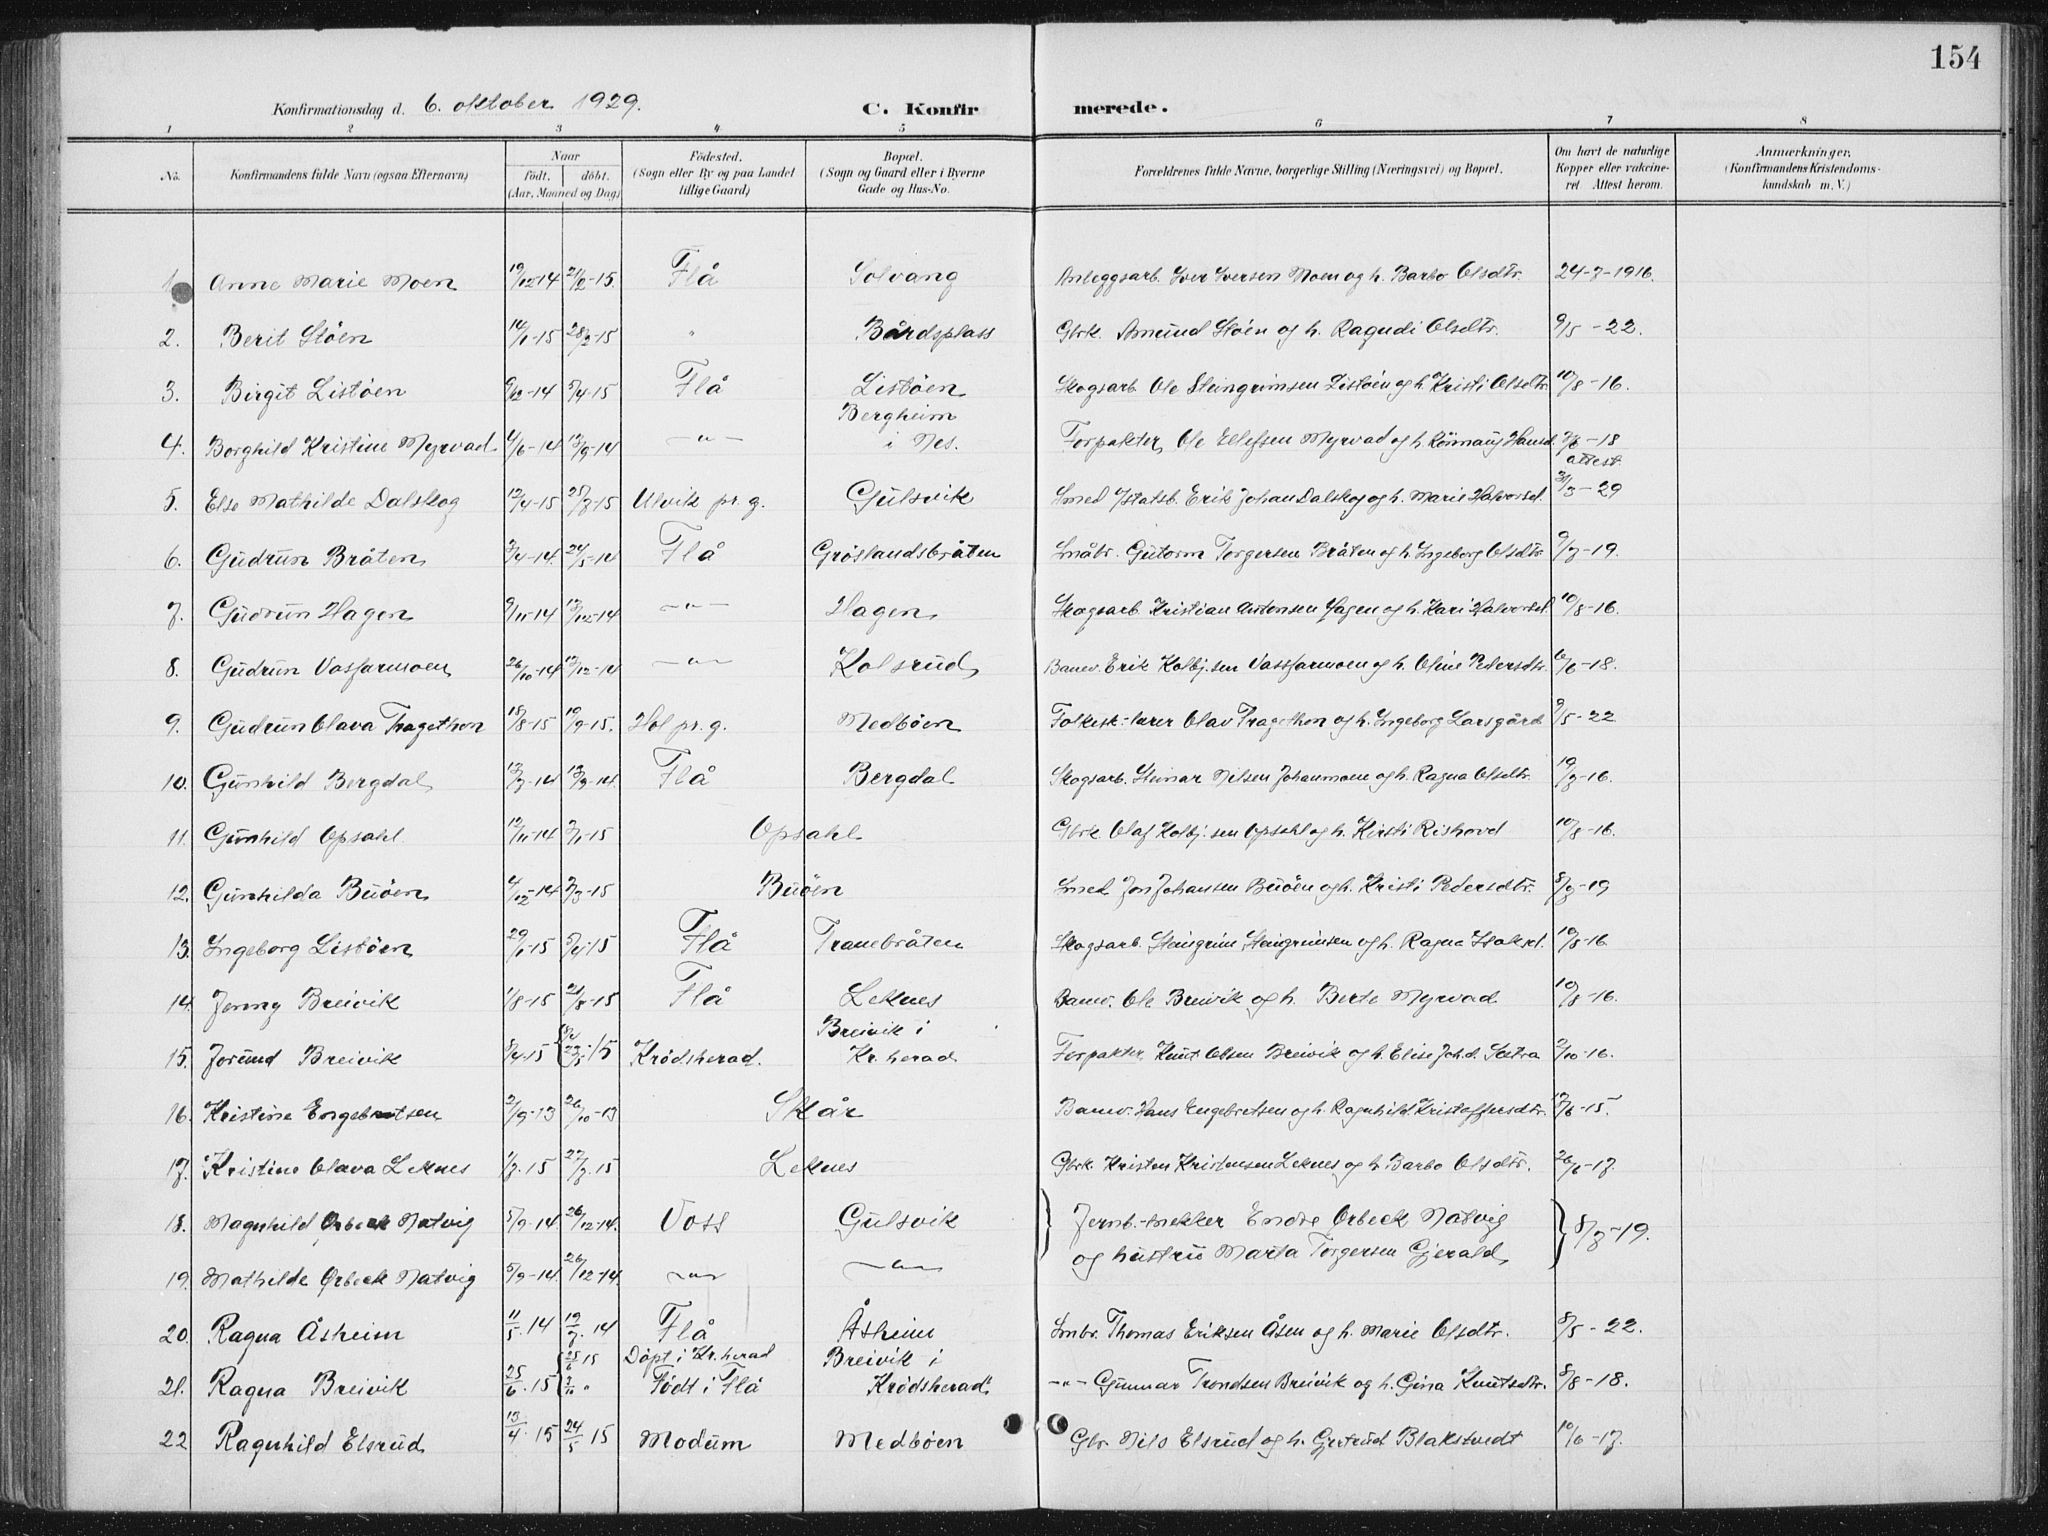 154
Konfirmationsdag d. 6. oktober 1929. C. Konfirmerede.
1 2 3 4 5 6 7 8
No. Konfirmandens fulde Navn (ogsaa Efternavn) Naar födt. döbt. (Aar, Maaned og Dag) Födested. (Sogn eller By og paa Landet tillige Gaard) Bopæl. (Sogn og Gaard eller i Byerne Gade og Hus-No. Forældrenes fulde Navne, borgerlige Stilling (Næringsvei) og Bopæl. Om havt de naturlige Kopper eller vakcineret Attest herom. Anmærkninger. (Konfirmandens Kristendomskundskab m. V.)
1 Anne Marie Moen 19/12-14 21/2-15. Flå Solvang Anleggsarb. Iver Iversen Moen og h. Barbo Olsdtr. 24-7-1916.
2. Berit Stöen 14/1-15 28/2-15 " Bårdsplass Gbrk. Amund Stöen og h. Ragndi Olsdtr. 9/5-22.
3. Birgit Listöen 9/12-14 5/4-15 Flå Listöen Skogsarb. Ole Steingrimsen Listöen og h. Kristi Olsdtr. 10/8-16.
4. Borghild Kristine Myrvad 4/6-14 13/9-14 -"- Bergheim i Nes. Forpakter Ole Ellefsen Myrvad og h. Rönnaug Hansd. 7/6-18
5. Else Mathilde Dalskog 12/4-15 25/7-15 Ulvik pr. g. Gulsvik Smed v/statsb. Erik Johan Dalskog og h. Marie Halvorsd. attest 30/3-29
6. Gudrun Bråten 3/4-14. 24/5-14 Flå Gröslandsbråten Småbr. Gutorm Torgersen Bråten og h. Ingeborg Olsdtr. 9/7-19.
7. Gudrun Hagen 9/11-14 13/12-14 -"- Hagen Skogsarb. Kristian Antonsen Hagen og h. Kari Halvorsd. 10/8-16.
8. Gudrun Vassfarmoen 26/10-14 13/12-14 -"- Kolsrud Banev. Erik Kolbj.sen Vassfarmoen og h. Oline Pedersdtr. 6/6-18.
9. Gudrun Olava Tragethon 18/8-15 19/9-15. Hol pr. g. Medböen Folkesk.-lærer Olav Tragethon og h. Ingeborg Larsgård 9/5-22
10. Gunhild Bergdal 12/7-14 13/9-14. Flå Bergdal Skogsarb. Steinar Nilsen Johanmoen og h. Ragna Olsdtr. 19/7-16.
11. Gunhild Opsahl 12/11-14 3/1-15 Opsahl Gbrk. Olaf Kolbj.sen Opsahl og h. Kirsti Rishovd 10/8-16.
12. Gunhilda Buöen 4/12-14 7/3-15 Buöen Smed Jon Johansen Buöen og h. Kristi Pedersdtr. 8/7-19
13. Ingeborg Listöen 29/1-15 5/4-15 Flå Tranebråten Skogsarb. Steingrim Steingrimsen og h. Ragna Isaksd. 10/8-16
14. Jenny Breivik 1/8-15 21/8-15 Flå Leknes Banev. Ole Breivik og h. Berte Myrvad. 10/8-16.
15. Jorund Breivik 8/4-15 23/5-15 Krödsherad. Breivik i Kr.herad Forpakter Knut Olsen Breivik og h. Elise Joh.d. Sætra 2/10-16.
16. Kristine Engebretsen 2/9-13 26/10-13 Skår Banev. Hans Engebretsen og h. Ragnhild Kristoffersdtr. 12/6-15.
17. Kristine Olava Leknes 1/7-15 27/7-15 Leknes Gbrk. Kristen Kristensen Leknes og h. Barbo Olsdtr. 26/6-17.
18. Magnhild Ørbeck Natvig 5/9-14. 26/12-14. Voss Gulsvik Jernb.-snekker Endre Ørbeck Natvig
og hustru Marta Torgersen Gjerald 8/7-19.
19. Mathilde Ørbeck Natvig 5/9-14. 26/12-14. -"- -"-
20. Ragna Åsheim 11/5-14 19/7-14 Flå Åsheim Smbr. Thomas Eriksen Åsen og h. Marie Olsdtr. 8/5-22.
21. Ragna Breivik 25/6-15 25/6 15 Döpt i Kr.herad Födt i Flå Breivik i Krödsherad. -"- Gunnar Trondsen Breivik og h. Gina Knutsdtr. 8/8-18.
22 Ragnhild Elsrud 13/4-15 24/5-15 Modum Medböen Gbr. Nils Elsrud og h. Gertrud Blakstvedt 10/6-17.